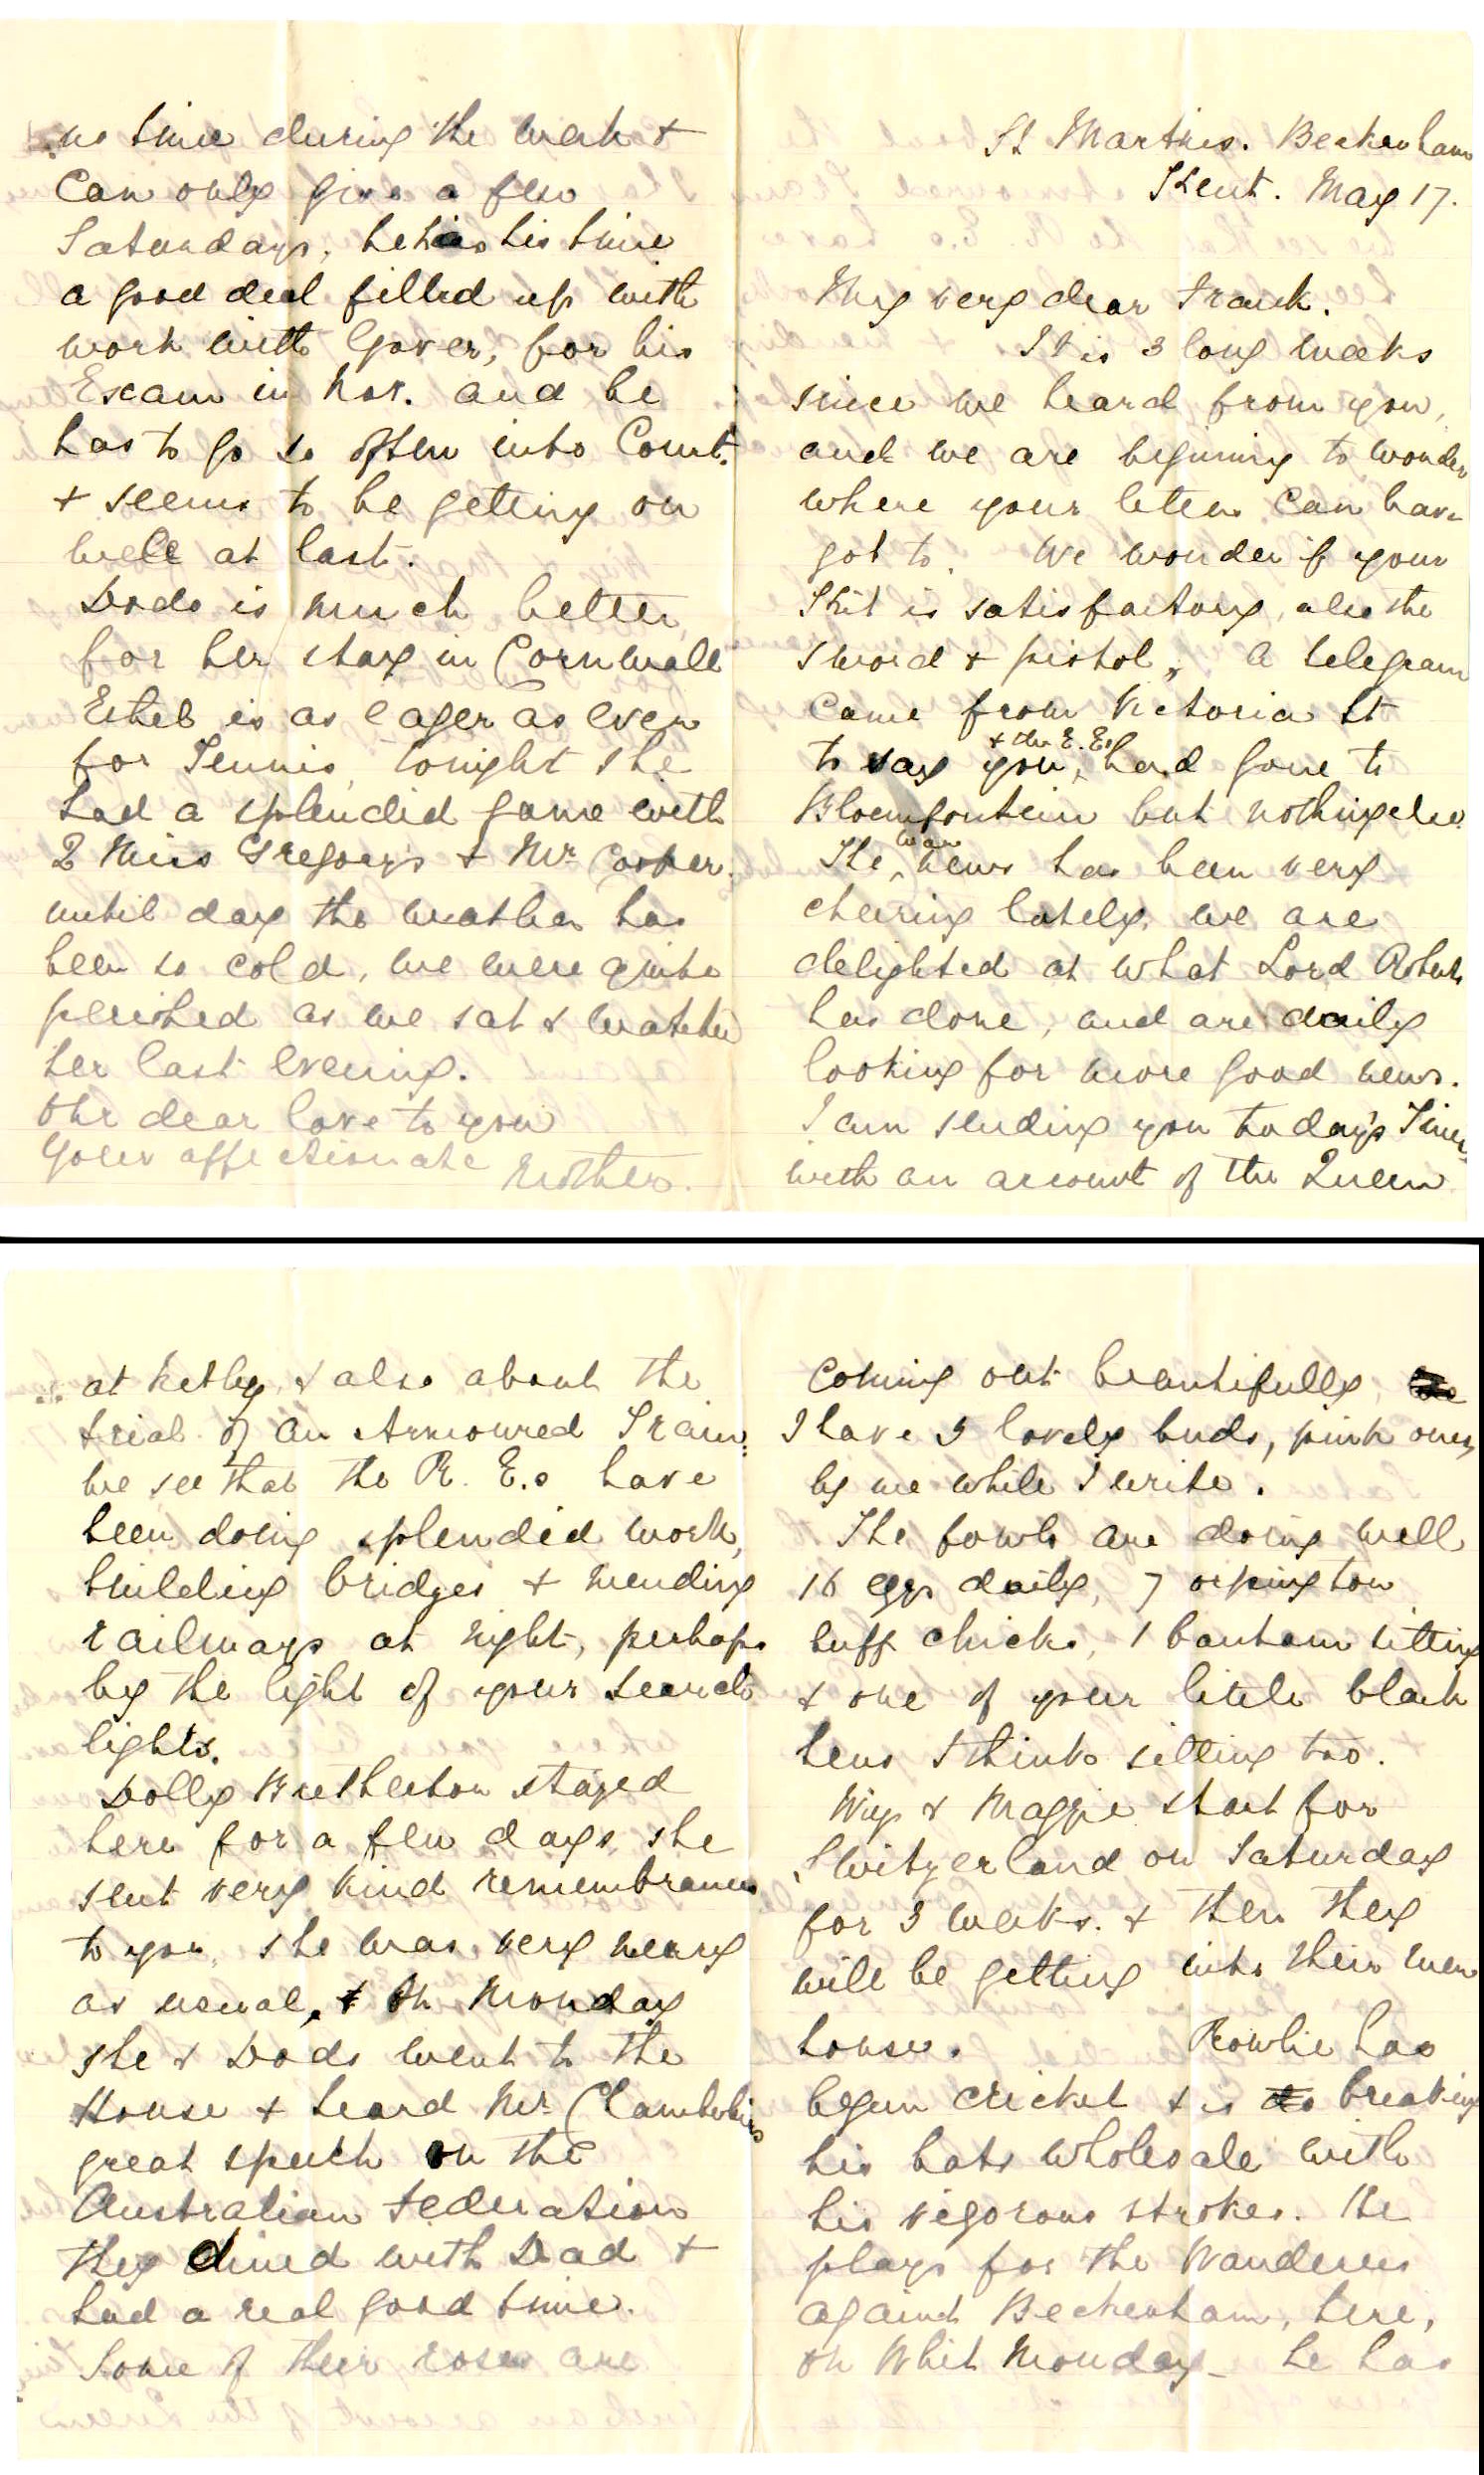 St Martins. Beckenham
Kent. May 17.
My very dear Frank.
It is 3 long weeks
since we heard from you,
and we are begining to wonder
where your letters can have
got to. We wonder if your
Kit is satisfactory, also the
sword & pistol, a telegram
came from Victoria St
to say you, & the E. Es had gone to
Bloemfontein but nothing else.
The war news has been very
cheering lately, we are
delighted at what Lord Roberts
has done, and are daily
looking for more good news.
I am sending you today's Times,
with an account of the Queen
at Netley, & also about the
trial of an Armoured Train.
we see that the R. E.s have
been doing splendid work,
building bridges & mending
railways at night, perhaps
by the light of your search
lights.
Dolly Bretherton stayed
here for a few days she
sent very kind remembrances
to you, she was very
as usual, & On Monday
she & Dods went to the
House & heard Mr Chamberlains
great speech on the
Australian Federation
they dined with Dad &
had a real good time.
Some of their roses are
coming out beautifully,
I have 3 lovely buds, pink ones,
by me while I write.
The fowls are doing well
16 eggs daily, 7 orpington
buff chicks, 1 bantam sitting
& one of your little black
hens I think sitting too.
& Maggie start for
Switzerland on Saturday
for 3 weeks. & then they
will be getting into their new
house. Rowlie has
begun cricket & is breaking
his bats wholesale with
his vigorous strokes. He
plays for the Wanderers
against Beckenham, here,
on Whit Monday_ he has
no time during the week &
can only give a few
Saturdays, he has his time
a good deal filled up with
work with Gover, for his
Exam in Nov. and he
has to go so often into Court.
& seems to be getting on
well at last.
Dods is much better
for her stay in Cornwall
Ethel is as eager as ever
for Tennis, tonight she
had a splendid game with
2 Miss Gregory's & Mr Cooper.
until day the weather has
been so cold, we were quite
perished as we sat & watched
her last evening.
Our dear love to you
Your affectionate Mother.